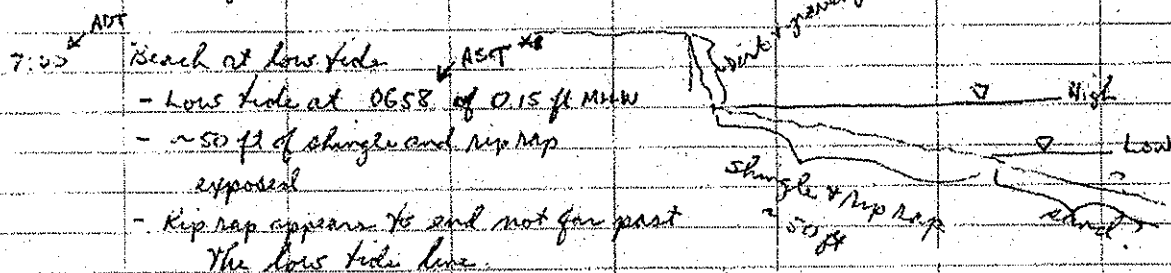 ADT
Beach at low tide
AST
- Low tide at 0658 of 0.15 ft
- ~50 ft of shingle and rip rap
exposed
- Rip rap appears to end not far past
the low tide line.
dirt &
High
Low
shingle & rip rap
~50 ft
sand?